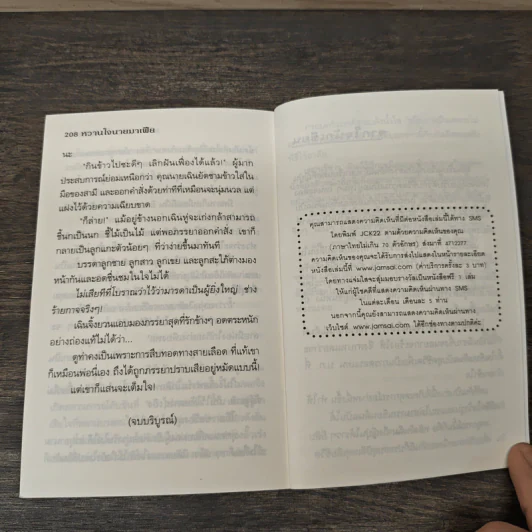 208 หวานใจนายมาเฟีย
นะ
"กินข้าวไปซะดีๆ เลิกฝันเฟื่องได้แล้ว!" ผู้มาก
ประสบการณ์ย่อมเหนือกว่า คุณนายเฉินยัดชามข้าวใส่ใน
มือของสามี และออกคำสั่งด้วยท่าทีที่เหมือนจะนุ่มนวล แต่
แฝงไว้ด้วยความเฉียบขาด
"ก็ล่าย!" แม้อยู่ข้างนอกเฉินฟู่จะเก่งกล้าสามารถ
ชี้นกเป็นนก ชี้ไม้เป็นไม้ แต่พอภรรยาออกคำสั่ง เขาก็
กลายเป็นลูกแกะตัวน้อยๆ ที่ว่าง่ายขึ้นมาทันที
บรรดาลูกชาย ลูกสาว ลูกเขย และลูกสะใภ้ต่างมอง
หน้ากันและอดชื่นชมในใจไม่ได้
ไม่เสียทีที่โบราณว่าไว้ว่ามารดาเป็นผู้ยิ่งใหญ่ ช่าง
ร้ายกาจจริงๆ!
เฉินจิ้งยวนแอบมองภรรยาสุดที่รักข้างๆ อดตระหนัก
อย่างถ่องแท้ไม่ได้ว่า...
ดูท่าคงเป็นเพราะการสืบทอดทางสายเลือด ที่แท้เขา
ก็เหมือนพ่อนี่เอง ถึงได้ถูกภรรยาปราบเสียอยู่หมัดแบบนี้!
แต่เขาก็แสนจะเต็มใจ!
(จบบริบูรณ์)
คุณสามารถแสดงความคิดเห็นที่มีต่อหนังสือเล่มนี้ได้ทาง SMS
โดยพิมพ์ JCK22 ตามด้วยความคิดเห็นของคุณ
(ภาษาไทยไม่เกิน 70 ตัวอักษร) ส่งมาที่ 4712377
ความคิดเห็นของคุณจะได้รับการส่งไปแสดงในหน้ารายละเอียด
หนังสือเล่มนี้ที่ www.jamsai.com (ค่าบริการครั้งละ 3 บาท)
โดยทางแจ่มใสจะสุ่มมอบรางวัลเป็นหนังสือฟรี 3 เล่ม
ให้แก่ผู้โชคดีที่แสดงความคิดเห็นผ่านทาง SMS
ในแต่ละเดือน เดือนละ 5 ท่าน
นอกจากนี้คุณยังสามารถแสดงความคิดเห็นผ่านทาง
เว็บไซต์ www.jamsai.com ได้อีกช่องทางเช่นกันค่ะ